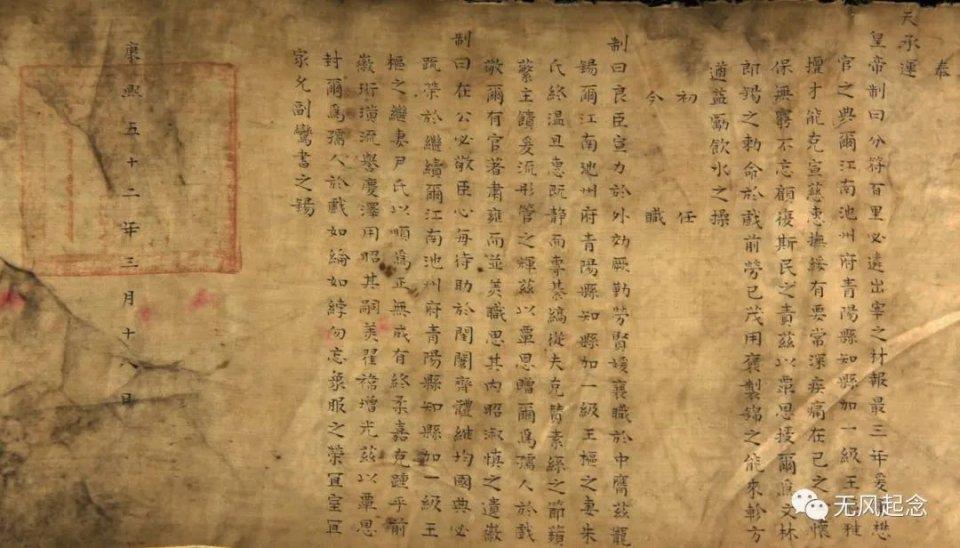 奉
天承運
皇帝制曰分符百里必遴出宰之材報最三年爰懋
官之典爾江南池州府青陽縣知縣加一級王樞雅
擅才能克宣慈惠撫綏有要常深疾痛在己之懷
保無窮不忘顧復斯民之責茲以覃恩授爾爲文林
郎錫之勅命於戲前勞已茂用褒製錦之能來軫方
遒益勵飲冰之操
初任
今職
制曰良臣宣力於外効厥勤勞賢媛襄職於中膺茲寵
錫爾江南池州府青陽縣知縣加一級王樞之妻朱
氏終溫且惠既靜而專綦縞從夫克贊素絲之節蘋
蘩主饋爰流彤管之輝茲以覃恩贈爾爲孺人於戲
敬爾有官著肅雍而並美職思其內昭淑慎之遺徽
制曰在公必敬臣心每待助於閨闈齊體維均國典必
疏榮於繼續爾江南池州府青陽縣知縣加一級王
樞之繼妻尹氏以順爲正無成有終柔嘉克踵乎前
徽珩璜流譽慶澤用昭其嗣美翟褕增光茲以覃恩
封爾爲孺人於戲如綸如綍勿忘象服之榮宜室宜
家允副鸞書之錫
康熙五十二年三月十八日
无风起念